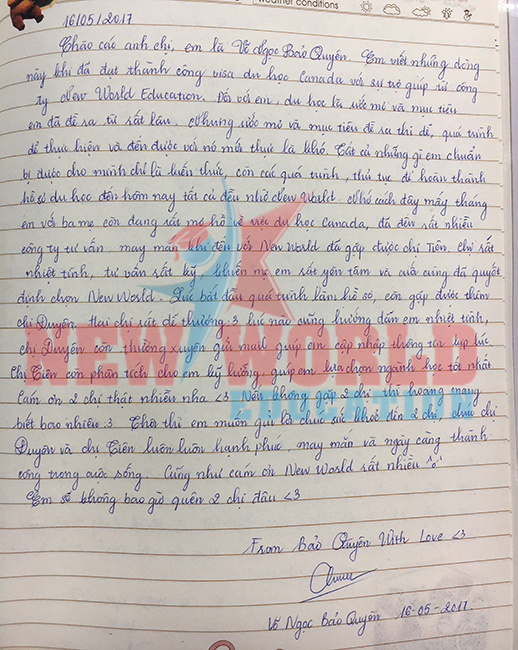 weather conditions
16/05/2017
Chào các anh chị, em là Võ Ngọc Bảo Quyên. Em viết những dòng
này khi đã đạt thành công visa du học Canada với sự trợ giúp từ công
ty New World Education. Đối với em, du học là ước mơ và mục tiêu
em đã đề ra từ rất lâu. Nhưng ước mơ và mục tiêu đề ra thì dễ, quá trình
để thực hiện và đến được với nó mới thực là khó. Tất cả những gì em chuẩn
bị được cho mình chỉ là kiến thức, còn các quá trình, thủ tục để hoàn thành
hồ sơ du học đến hôm nay tất cả đều nhờ New World. Nhớ cách đây mấy tháng
em với ba mẹ còn đang rất mơ hồ về việc du học Canada, đã đến rất nhiều
công ty tư vấn may mắn khi đến với New World đã gặp được chị Tiên. Chị rất
nhiệt tình, tư vấn rất kỹ, khiến mẹ em rất yên tâm và cuối cùng đã quyết
định chọn New World. Lúc bắt đầu quá trình làm hồ sơ, còn gặp được thêm
chị Duyên. Hai chị rất dễ thương :3 lúc nào cũng hướng dẫn em nhiệt tình,
chị Duyên còn thường xuyên gửi mail giúp em cập nhập thông tin liên tục.
Chị Tiên còn phân tích cho em kỹ lưỡng, giúp em lựa chọn ngành học tốt nhất.
Cám ơn 2 chị thật nhiều nha <3 Nếu không gặp 2 chị thì hoang mang
biết bao nhiêu :3 Thôi thì em muốn gửi lời chúc sức khoẻ đến 2 chị, chúc chị
Duyên và chị Tiên luôn luôn hạnh phúc, may mắn và ngày càng thành
công trong cuộc sống. Cũng như cám ơn New World rất nhiều ^o^
Em sẽ không bao giờ quên 2 chị đâu <3
From Bảo Quyên With Love <3
Võ Ngọc Bảo Quyên 16-05-2017
NEW WORLD
EDUCATION